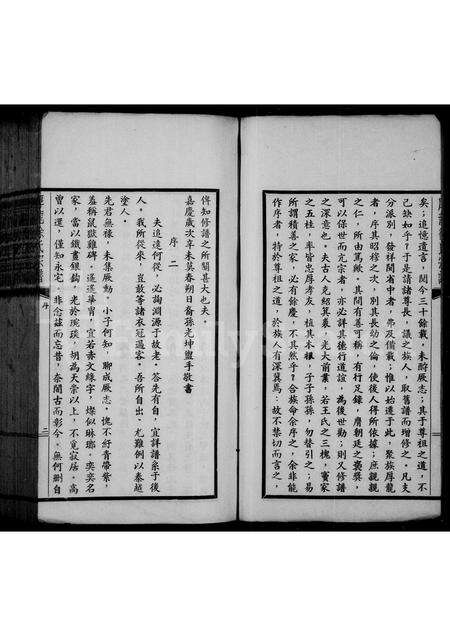 矣；追憶遺言，閱今三十餘載，未酹厥志；其于尊祖之道，不
已缺如乎！于是請諸尊長，議之族人，取舊譜而增修之。凡支
分派別，發祥閩省中者，弗及備載；惟以始遷于此，聚族厚龍
者，序其昭穆之次，別其長幼之倫，使後人得所依據；庶親親
之仁，所由篤歟。其間有善可稱，有行足錄，膺朝廷之褒獎，
可以保世而亢宗者，亦必詳其德行道誼，為後世勸；則又修譜
之深意也。夫古人克紹箕裘，光大前業，若王氏之三槐，竇家
之五桂，率皆忠厚孝友，植其本根，子子孫孫，勿替引之；易
所謂積善之家，必有餘慶，不其然乎！合族命余序之，余非能
作序者，特於尊祖之道，於族人有深冀焉：故不禁切而言之，
俾知修譜之所關甚大也夫。
嘉慶歲次辛未莫春朔日裔孫光坤盥手敬書
序二
夫追遠何從，必詢淵源于故老。答差有自，宜詳譜系于後
人，我所從來，豈敢等諸衣冠過客。吾所自出，尤難例以秦越
塗人。
先君無祿，未集厥勳，小子何知，聊成厥志。愧不紆青帶紫，
羞稱鼠獄雞碑。遙遙華冑，宜若赤文綠字，燦似琳瑯。奕奕名
家，當以鐵畫銀鈎，光於琬琰。胡為天崇以上，不覓寂居。高
曾以還，僅知永宅。非念茲而忘昔，奈聞古而彰今。無何刪自
序
二